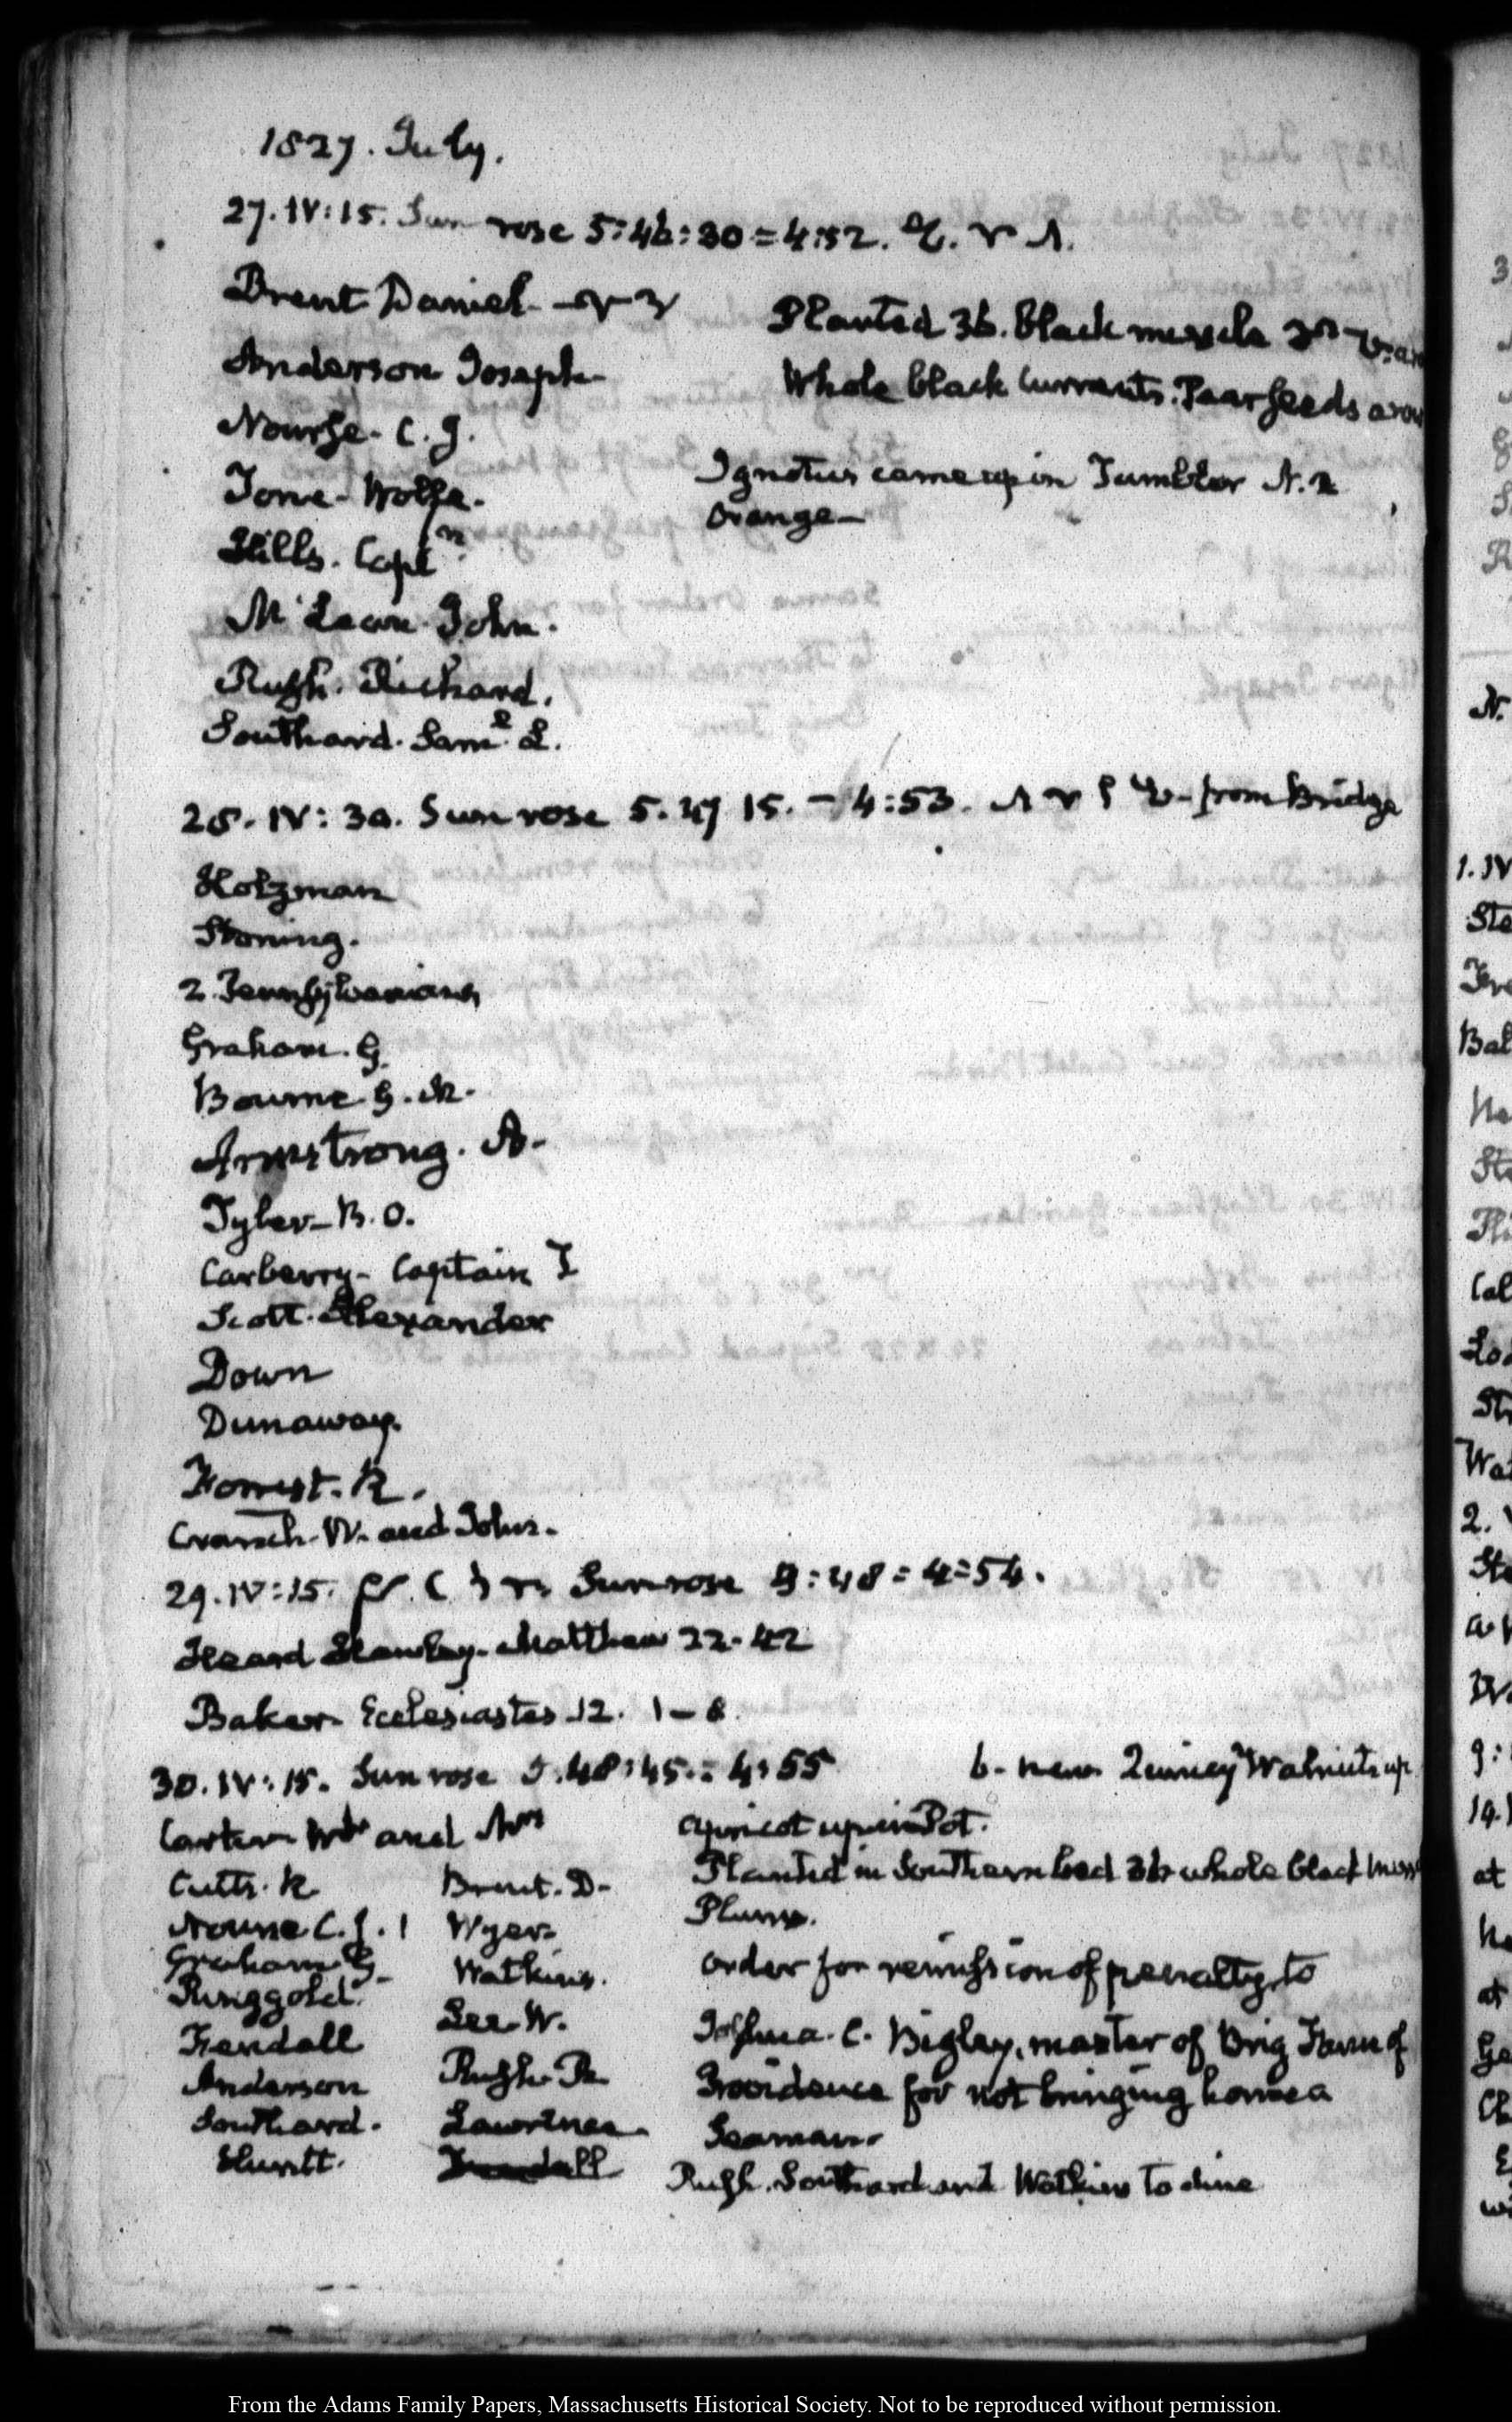 1827. July.
27. IV:15. Sun rose 5:46:30 = 4:52.
Brent Daniel
Anderson Joseph
Nourse. C. J.
Tone - Wolfe.
Hills. Capt.n
McLean John.
Rush. Richard.
Southard. Saml. L.
Planted 36. black muscle
Whole black Currants. Pear seeds
Ignotus came up in Tumbler N. 2
Orange—
28. IV:30. Sun rose 5.47 15. - 4:53. from Bridge
Holzman
2. Pennsylvanians
Graham. G.
Bourne. G. M.
Armstrong. A.
Tyler - B. O.
Carberry - Captain T
Scott. Alexander
Down
Dunaway.
Forrest. R.
Cranch. W. and John.
29. IV:15. Sun rose 5:48 = 4:54.
Heard Hawley. Matthew 22. 42
Baker Ecclesiastes 12. 1-8.
30. IV:15. Sun rose 5.48:45. = 4:55
6. new Quincy Walnuts up
Carter and
Cutts. R.
Nourse C. J. 1
Graham G.
Ringgold.
Kendall
Anderson
Southard.
Huntt.
Brent. D.
Wyer
Watkins.
Lee. W.
Rush. R
Lawrence
apricot up in Pot.
Planted in Southern bed 36 whole black
Plums.
Order for remission of penalty, to
Joshua. C. Bigley, master of Brig of
Providence for not bringing home a
Seaman.
Rush. Southard and Watkins to dine
From the Adams Family Papers, Massachusetts Historical Society. Not to be reproduced without permission.